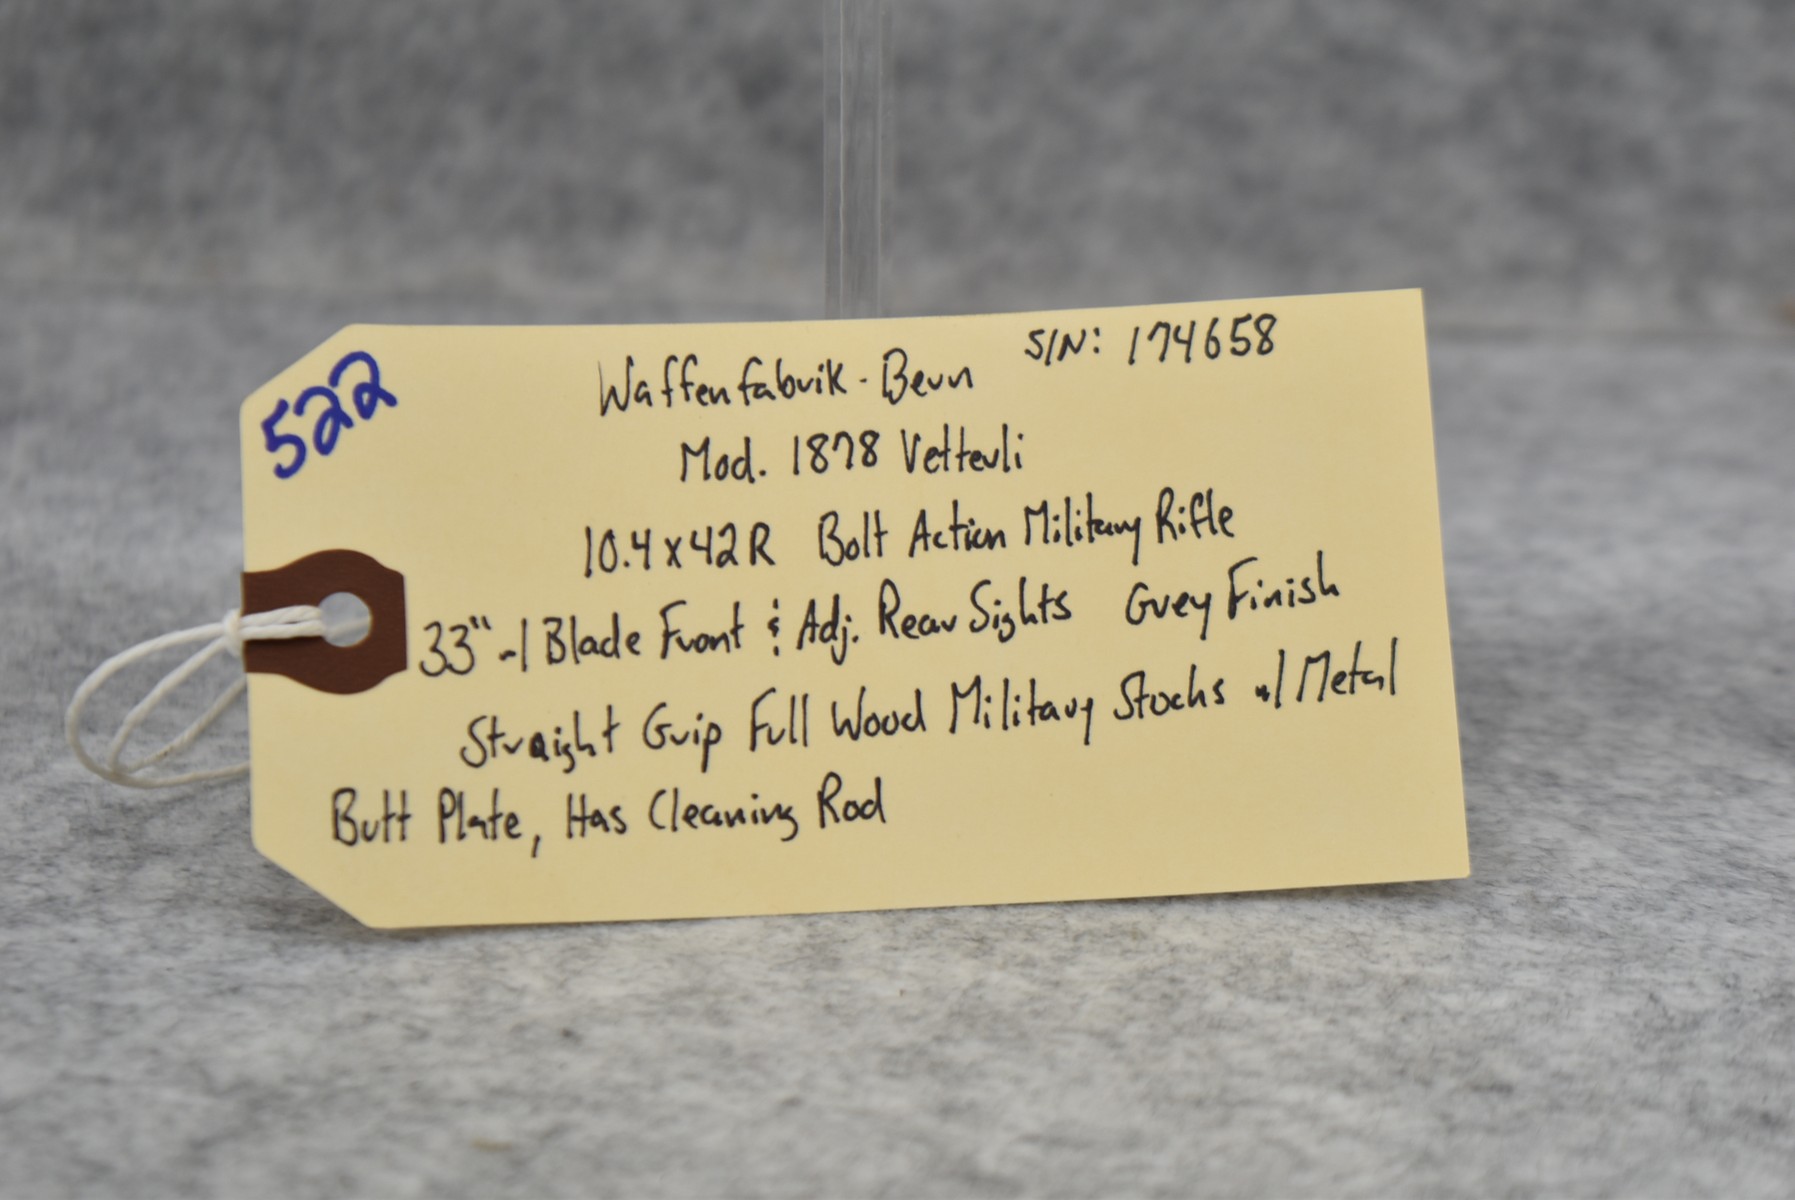 522
Waffenfabrik - Bern S/N: 174658
Mod. 1878 Vetterli
10.4x42R Bolt Action Military Rifle
33" w/ Blade Front & Adj. Rear Sights Grey Finish
Straight Grip Full Wood Military Stocks w/ Metal
Butt Plate, Has Cleaning Rod